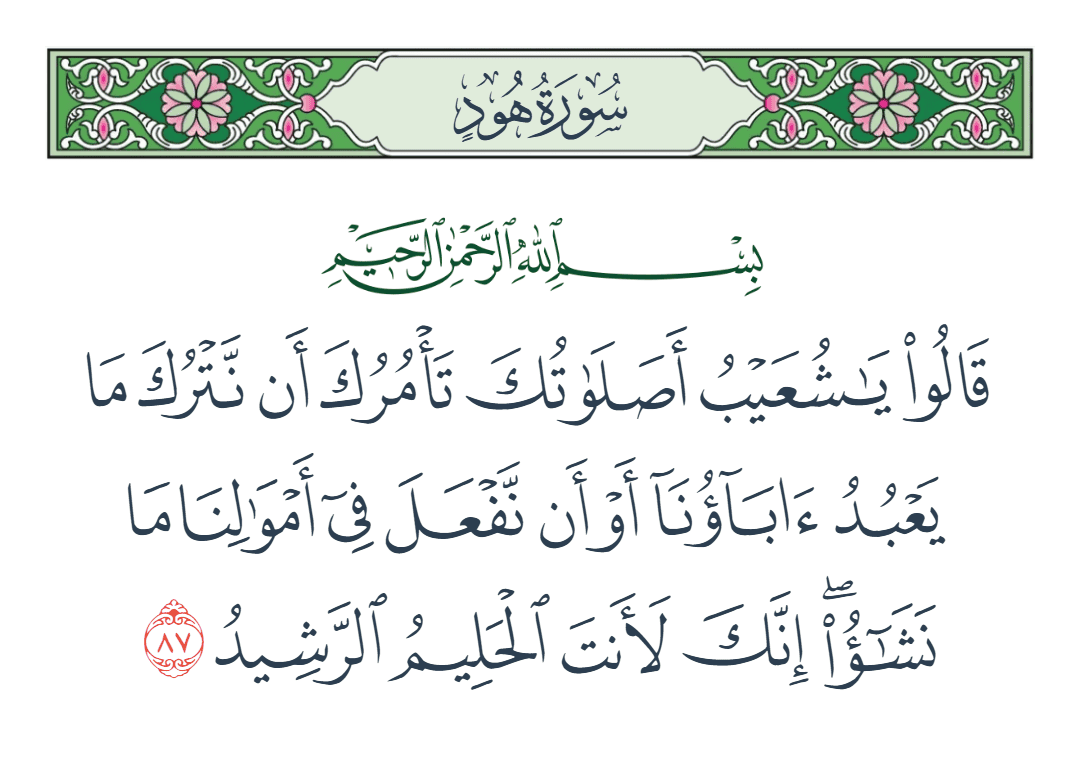 سُورَةُ هُودٍ
بِسْمِ ٱللَّهِ ٱلرَّحْمَٰنِ ٱلرَّحِيمِ
قَالُوا۟ يَـٰشُعَيْبُ أَصَلَوٰتُكَ تَأْمُرُكَ أَن نَّتْرُكَ مَا
يَعْبُدُ ءَابَآؤُنَآ أَوْ أَن نَّفْعَلَ فِىٓ أَمْوَٰلِنَا مَا
نَشَـٰٓؤُا۟ ۖ إِنَّكَ لَأَنتَ ٱلْحَلِيمُ ٱلرَّشِيدُ ٨٧